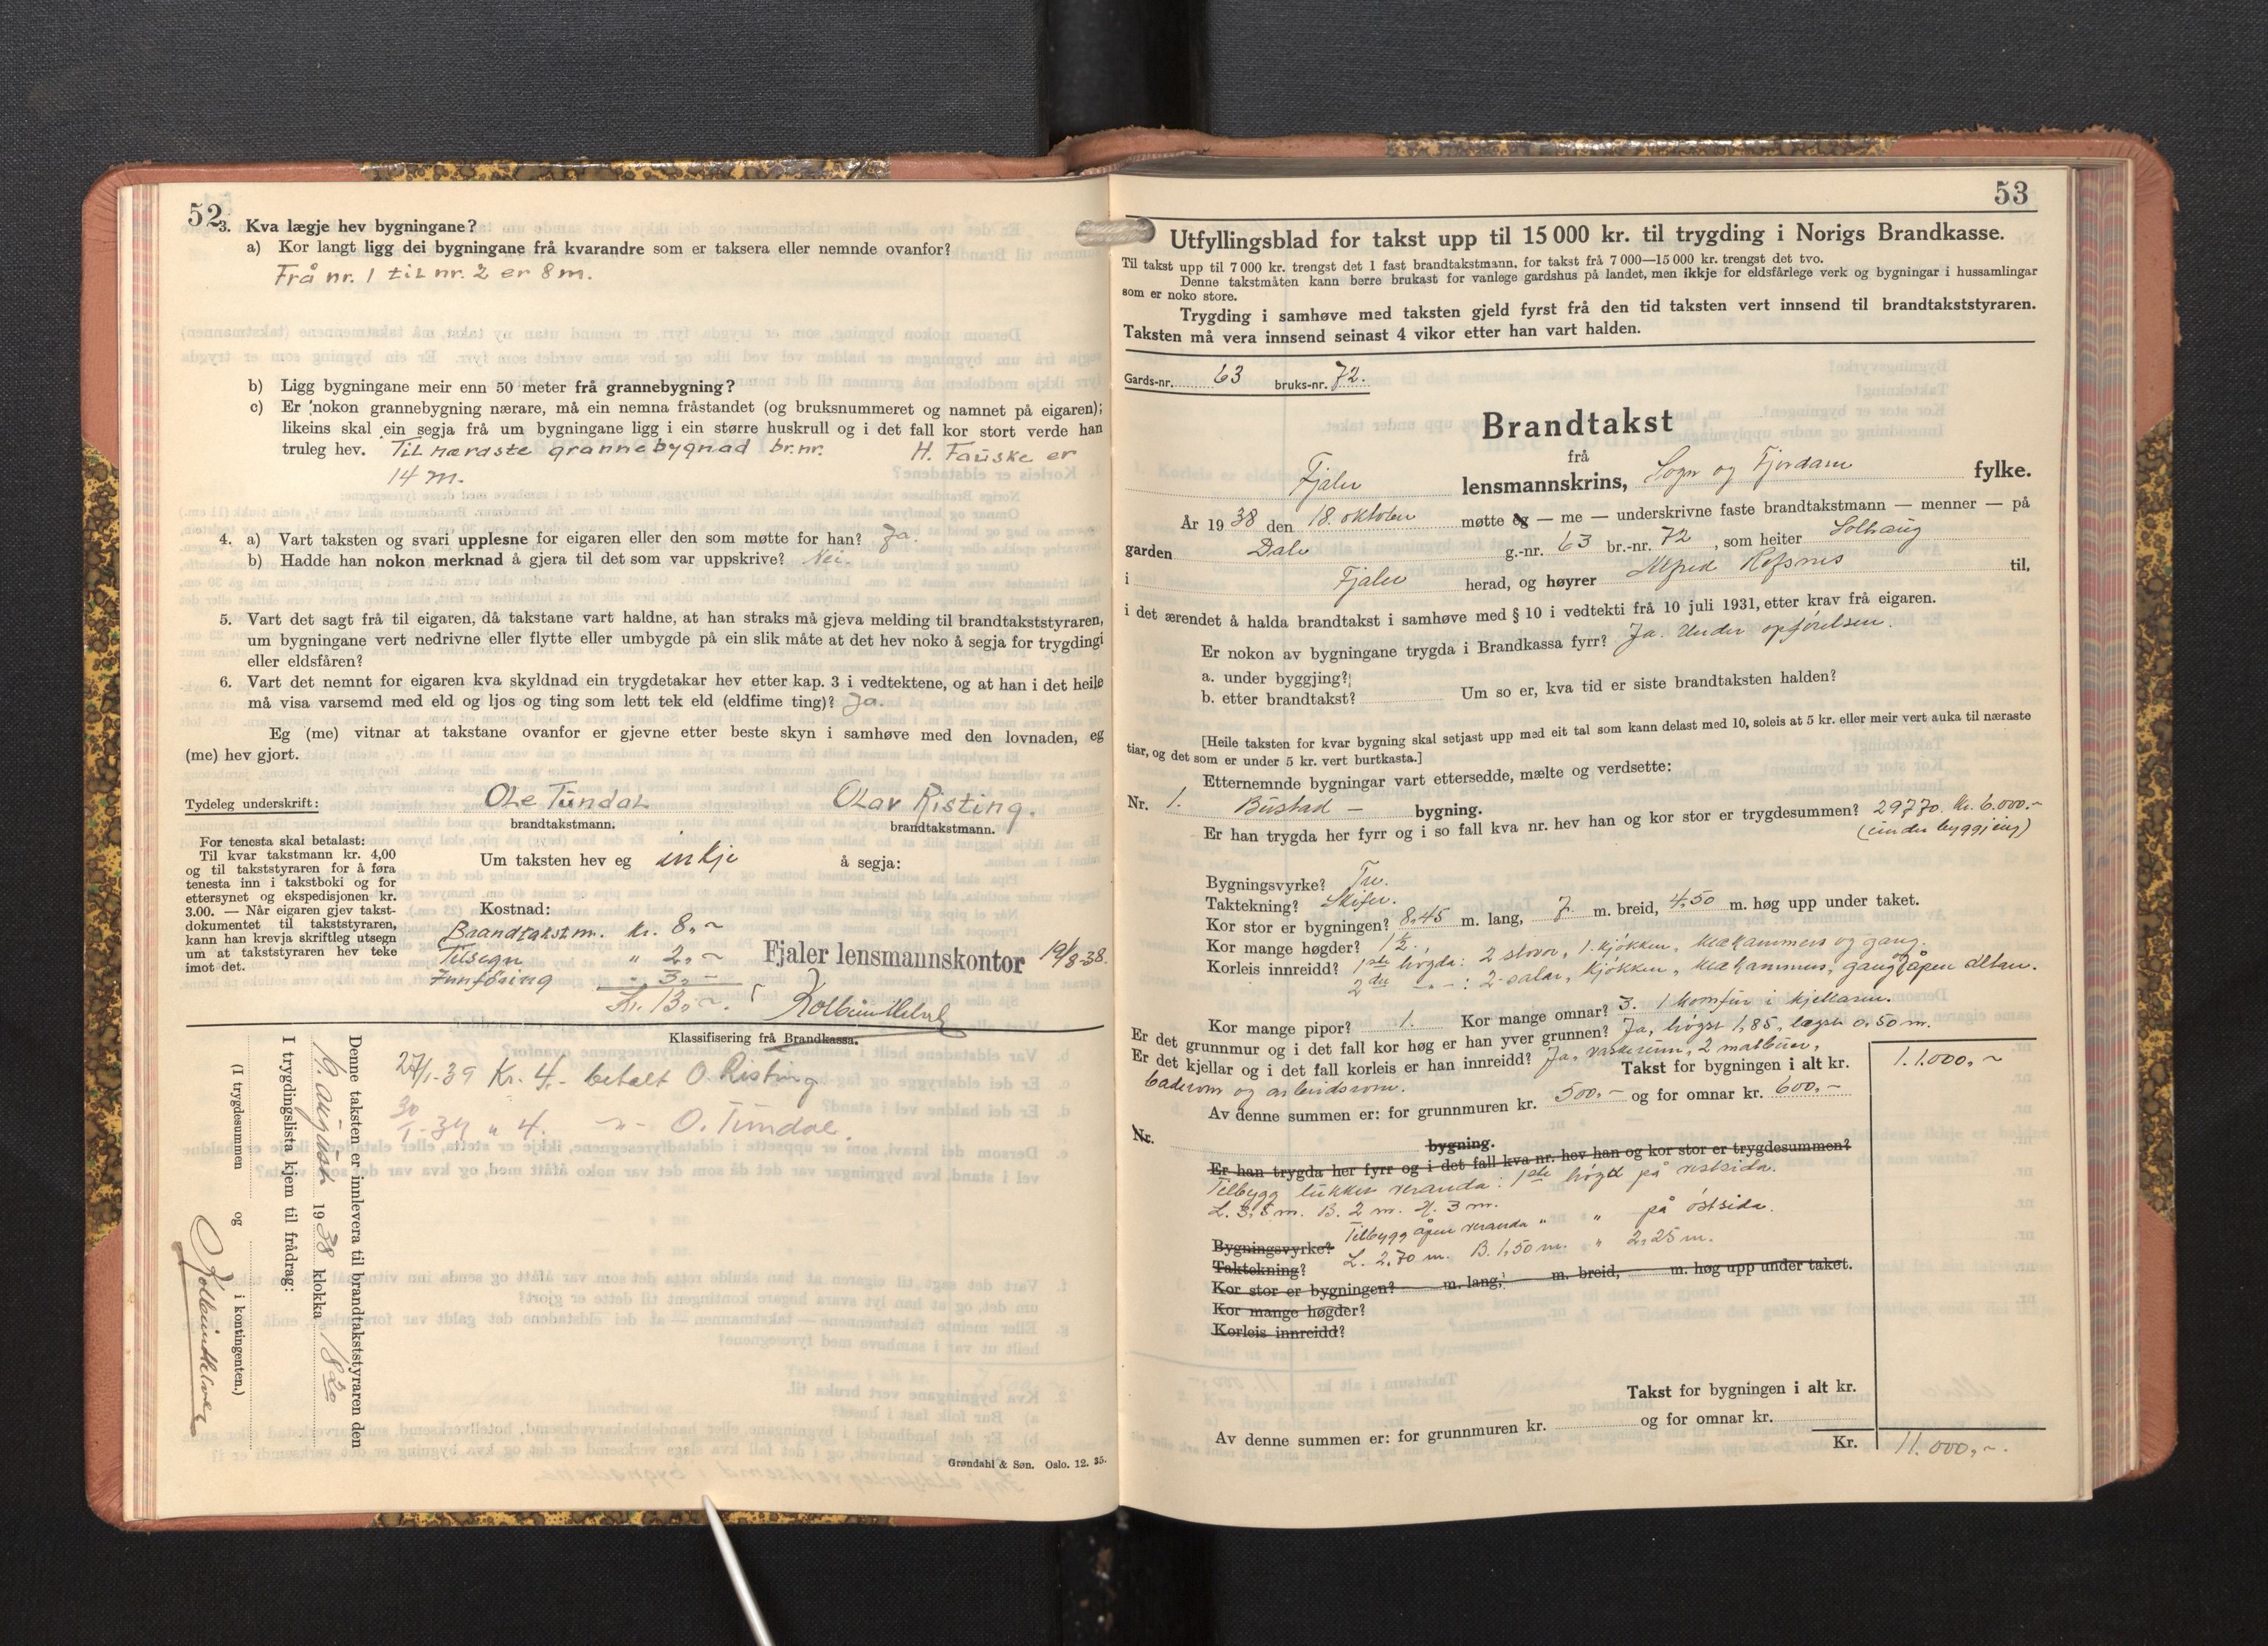 52
3. Kva lægje hev bygningane?
a) Kor langt ligg dei bygningane frå kvarandre som er taksera eller nemnde ovanfor?
Frå nr. 1 til nr. 2 er 8 m.
b) Ligg bygningane meir enn 50 meter frå grannebygning?
c) Er nokon grannebygning nærare, må ein nemna fråstandet (og bruksnummeret og namnet på eigaren);
likeins skal ein segja frå um bygningane ligg i ein større huskrull og i det fall kor stort verde han
truleg hev. Til næraste grannebygnad br.nr. H. Fauske er
14 m.
4. a) Vart taksten og svari upplesne for eigaren eller den som møtte for han? Ja.
b) Hadde han nokon merknad å gjera til det som var uppskrive? Nei.
5. Vart det sagt frå til eigaren, då takstane vart haldne, at han straks må gjeva melding til brandtakststyraren,
um bygningane vert nedrivne eller flytte eller umbygde på ein slik måte at det hev noko å segja for trygdingi
eller eldsfåren?
6. Vart det nemnt for eigaren kva skyldnad ein trygdetakar hev etter kap. 3 i vedtektene, og at han i det heile
må visa varsemd med eld og ljos og ting som lett tek eld (eldfime ting)? Ja.
Eg (me) vitnar at takstane ovanfor er gjevne etter beste skyn i samhøve med den lovnaden, eg
(me) hev gjort.
Tydeleg underskrift: Ole Tundal Olav Risting.
brandtakstmann. brandtakstmann.
For tenesta skal betalast:
Til kvar takstmann kr. 4,00
og til takststyraren for å føra
tenesta inn i takstboki og for
ettersynet og ekspedisjonen kr.
3.00. — Når eigaren gjev takst-
dokumentet til takststyraren,
kann han krevja skriftleg utsegn
um at takststyraren hev teke
imot det.
Um taksten hev eg inkje å segja:
Kostnad:
Brandtakstm. kr. 8,-
Tilsegn " 2,-
Innföring " 3,-
Kr. 13,-
Fjaler lensmannskontor 19/8-38.
Klassifisering frå Brandkassa.
27/1-39 Kr. 4.- betalt O Risting
30/1-39 " 4. -"- O. Tundal.
Denne taksten er innlevera til brandtakststyraren den
19. august 1938 klokka 18 20
I trygdingslista kjem til frådrag:
(I trygdesummen og i kontingenten.)
Grøndahl & Søn. Oslo. 12. 35.
53
Utfyllingsblad for takst upp til 15 000 kr. til trygding i Norigs Brandkasse.
Til takst upp til 7 000 kr. trengst det 1 fast brandtakstmann, for takst frå 7 000—15 000 kr. trengst det tvo.
Denne takstmåten kann berre brukast for vanlege gardshus på landet, men ikkje for eldsfårlege verk og bygningar i hussamlingar
som er noko store.
Trygding i samhøve med taksten gjeld fyrst frå den tid taksten vert innsend til brandtakststyraren.
Taksten må vera innsend seinast 4 vikor etter han vart halden.
Gards-nr. 63 bruks-nr. 72.
Brandtakst
frå
Fjaler lensmannskrins, Sogn og Fjordane fylke.
År 1938 den 18. oktober møtte eg — me — underskrivne faste brandtakstmann — menner — på
garden Dale g.-nr. 63 br.-nr. 72, som heiter Solhaug
i Fjaler herad, og høyrer Alfred Hofsnes til,
i det ærendet å halda brandtakst i samhøve med § 10 i vedtekti frå 10 juli 1931, etter krav frå eigaren.
Er nokon av bygningane trygda i Brandkassa fyrr? Ja. Under opførelsen.
a. under byggjing?
b. etter brandtakst? Um so er, kva tid er siste brandtaksten halden?
[Heile taksten for kvar bygning skal setjast upp med eit tal som kann delast med 10, soleis at 5 kr. eller meir vert auka til næraste
tiar, og det som er under 5 kr. vert burtkasta.]
Etternemnde bygningar vart ettersedde, mælte og verdsette:
Nr. 1. Bustad - bygning.
Er han trygda her fyrr og i so fall kva nr. hev han og kor stor er trygdesummen? 29770. Kr. 6.000.-
(under byggjing)
Bygningsvyrke? Tre.
Taktekning? Skifer.
Kor stor er bygningen? 8,45 m. lang, 7. m. breid, 4,50 m. høg upp under taket.
Kor mange høgder? 1½.
Korleis innreidd? 1ste høgde: 2 stovor, 1. kjøkken, klækammers og gang.
2dre -"-: 2-salar, kjøkken, klækammers, gang, åpen altan.
Kor mange pipor? 1. Kor mange omnar? 3. 1 komfur i kjellaren.
Er det grunnmur og i det fall kor høg er han yver grunnen? Ja, høgst 1,85, lægst 0,50 m.
Er det kjellar og i det fall korleis er han innreidd? Ja, vaskerum, 2 matbuer,
baderom og arbeidsrom.
Takst for bygningen i alt kr. 11.000,-
Av denne summen er: for grunnmuren kr. 500,- og for omnar kr. 600,-
Nr. bygning.
Er han trygda her fyrr og i det fall kva nr. hev han og kor stor er trygdesummen?
Tilbygg lukket veranda: 1ste høgd på vestsida.
L. 3,5 m. B. 2 m. H. 3 m.
Tilbygg åpen veranda " " på østsida.
Bygningsvyrke?
L. 2,70 m. B. 1,50 m. " 2,25 m.
Taktekning?
Kor stor er bygningen? m. lang, m. breid, m. høg upp under taket.
Kor mange høgder?
Korleis innreidd?
Takst for bygningen i alt kr.
Av denne summen er: for grunnmuren kr. og for omnar kr.
Kr. 11.000,-.